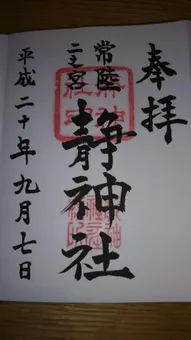 奉拝
常陸
二之宮
静神社
平成二十年九月七日